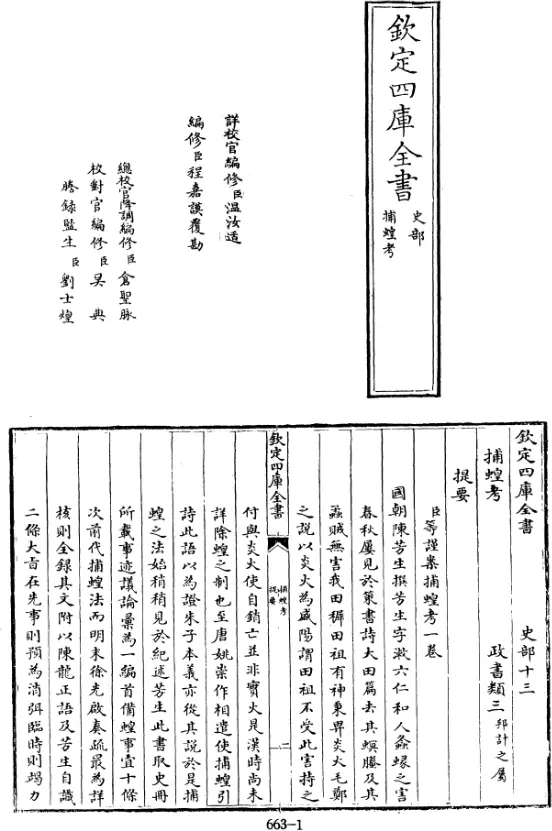 欽定四庫全書
史部
捕蝗考
詳校官編修臣溫汝适
編修臣程嘉謨覆勘
總校官降調編修臣倉聖脉
校對官編修臣吴典
謄録監生臣劉士煌
欽定四庫全書 史部十三
捕蝗考 政書類三邦計之屬
提要
臣等謹案捕蝗考一卷
國朝陳芳生撰芳生字漱六仁和人螽蝝之害
春秋屢見於策書詩大田篇去其螟螣及其
蟊賊無害我田穉田祖有神秉畀炎火毛鄭
之説以炎火為盛陽謂田祖不受此害持之
欽定四庫全書
捕蝗考
提要
二
付與炎火使自銷亡並非實火是漢時尚未
詳除蝗之制也至唐姚崇作相遣使捕蝗引
詩此語以為證朱子本義亦從其説於是捕
蝗之法始稍稍見於紀述芳生此書取史冊
所載事迹議論彚為一編首備蝗事宜十條
次前代捕蝗法而明末徐光啟奏疏最為詳
核則全録其文附以陳龍正語及芳生自識
二條大旨在先事則預為消弭臨時則竭力
663-1